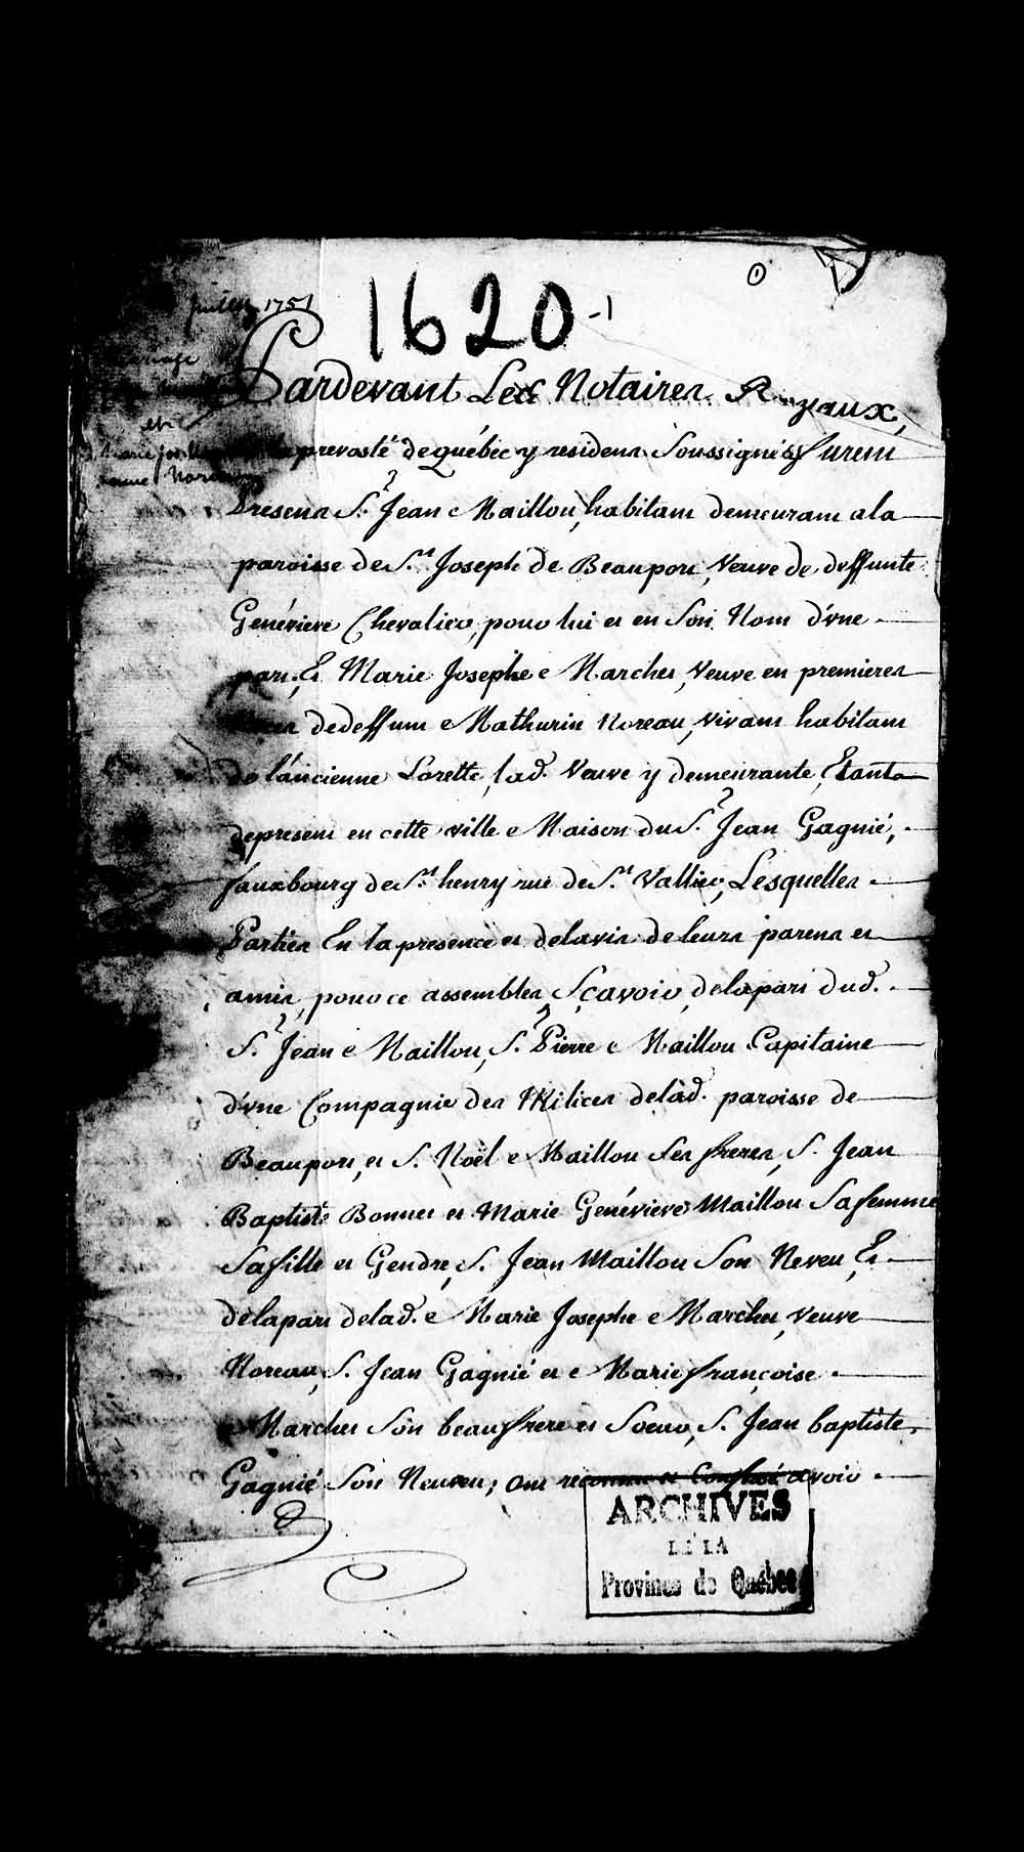 1620-1
Juillet 1751
mariage
et
Marie Jos
veuve Noreau
Pardevant Les Notaires Royaux,
la prevosté de québec y residens Soussignés furent
Presens Sr. Jean Maillou, habitant demeurant ala
paroisse de St. Joseph de Beauport, Veuve de deffunte
Genévieve Chevalier, pour lui et en Son Nom d'vne
part, Et Marie Josephe Marcher, Veuve en premieres
Noces dedeffunt Mathurin Noreau, vivant habitant
de l'áncienne Lorette, lad. Veuve y demeurante, Etant
depresent en cette ville Maison du Sr. Jean Gagnié,
fauxbourg de St. henry rue de St. Vallier, Lesquelles
Parties En la presence et delavis de leurs parens et
amis, pour ce assembles, Sçavoir, delapart dud.
Sr. Jean Maillou, Sr. Pierre Maillou Capitaine
d'vne Compagnie des Milices delad. paroisse de
Beauport, et S. Noël Maillou Ses freres, S. Jean
Baptiste Bonnet et Marie Genévieve Maillou Safemme
Safille et Gendre, S. Jean Maillou Son Neveu, Et
delapart delad. Marie Josephe Marcher, veuve
Noreau, S. Jean Gagnié et Marie françoise
Marcher Son beaufrere et Soeur, S. Jean baptiste
Gagnié Son Neveu; ont reconnu et Confessé avoir
ARCHIVES
DE LA
Province de Québec